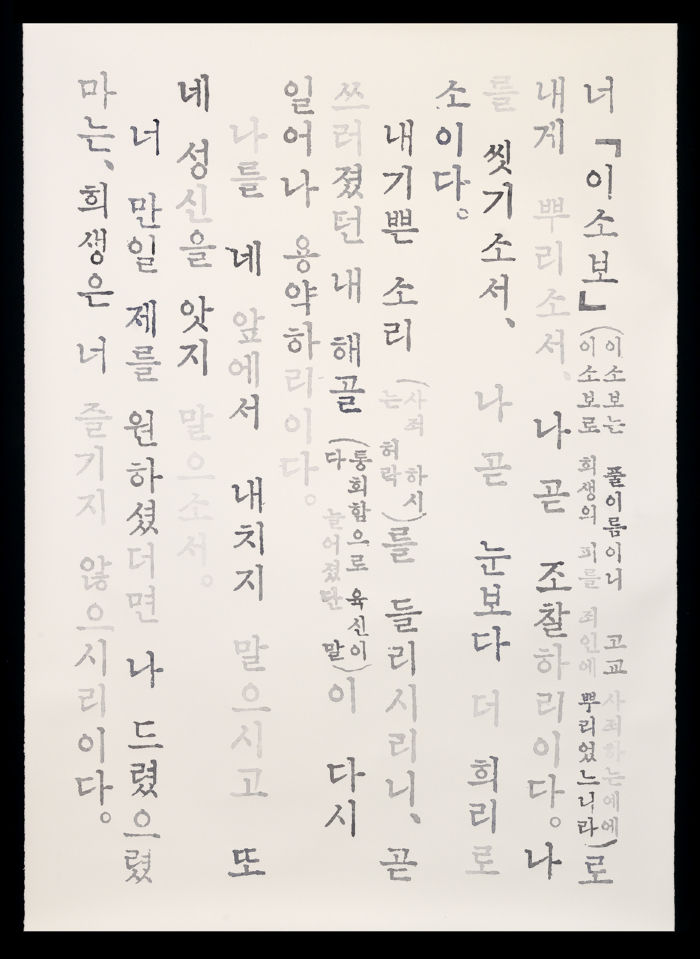 너 「이소보」(이소보는 풀이름이니 고교 사죄하는예에
이소보로 희생의 피를 죄인에 뿌리었느니라)로
내게 뿌리소서、 나 곧 조찰하리이다。 나
를 씻기소서、 나 곧 눈보다 더 희리로
소이다。
내기쁜 소리 (사죄 하시
는 허락)를 들리시리니、 곧
쓰러졌던 내 해골 (통회함으로 육신이
다 늘어졌단 말)이 다시
일어나 용약하리이다。
나를 네 앞에서 내치지 말으시고 또
네 성신을 앗지 말으소서。
너 만일 제를 원하셨더면 나 드렸으렸
마는、희생은 너 즐기지 않으시리이다。